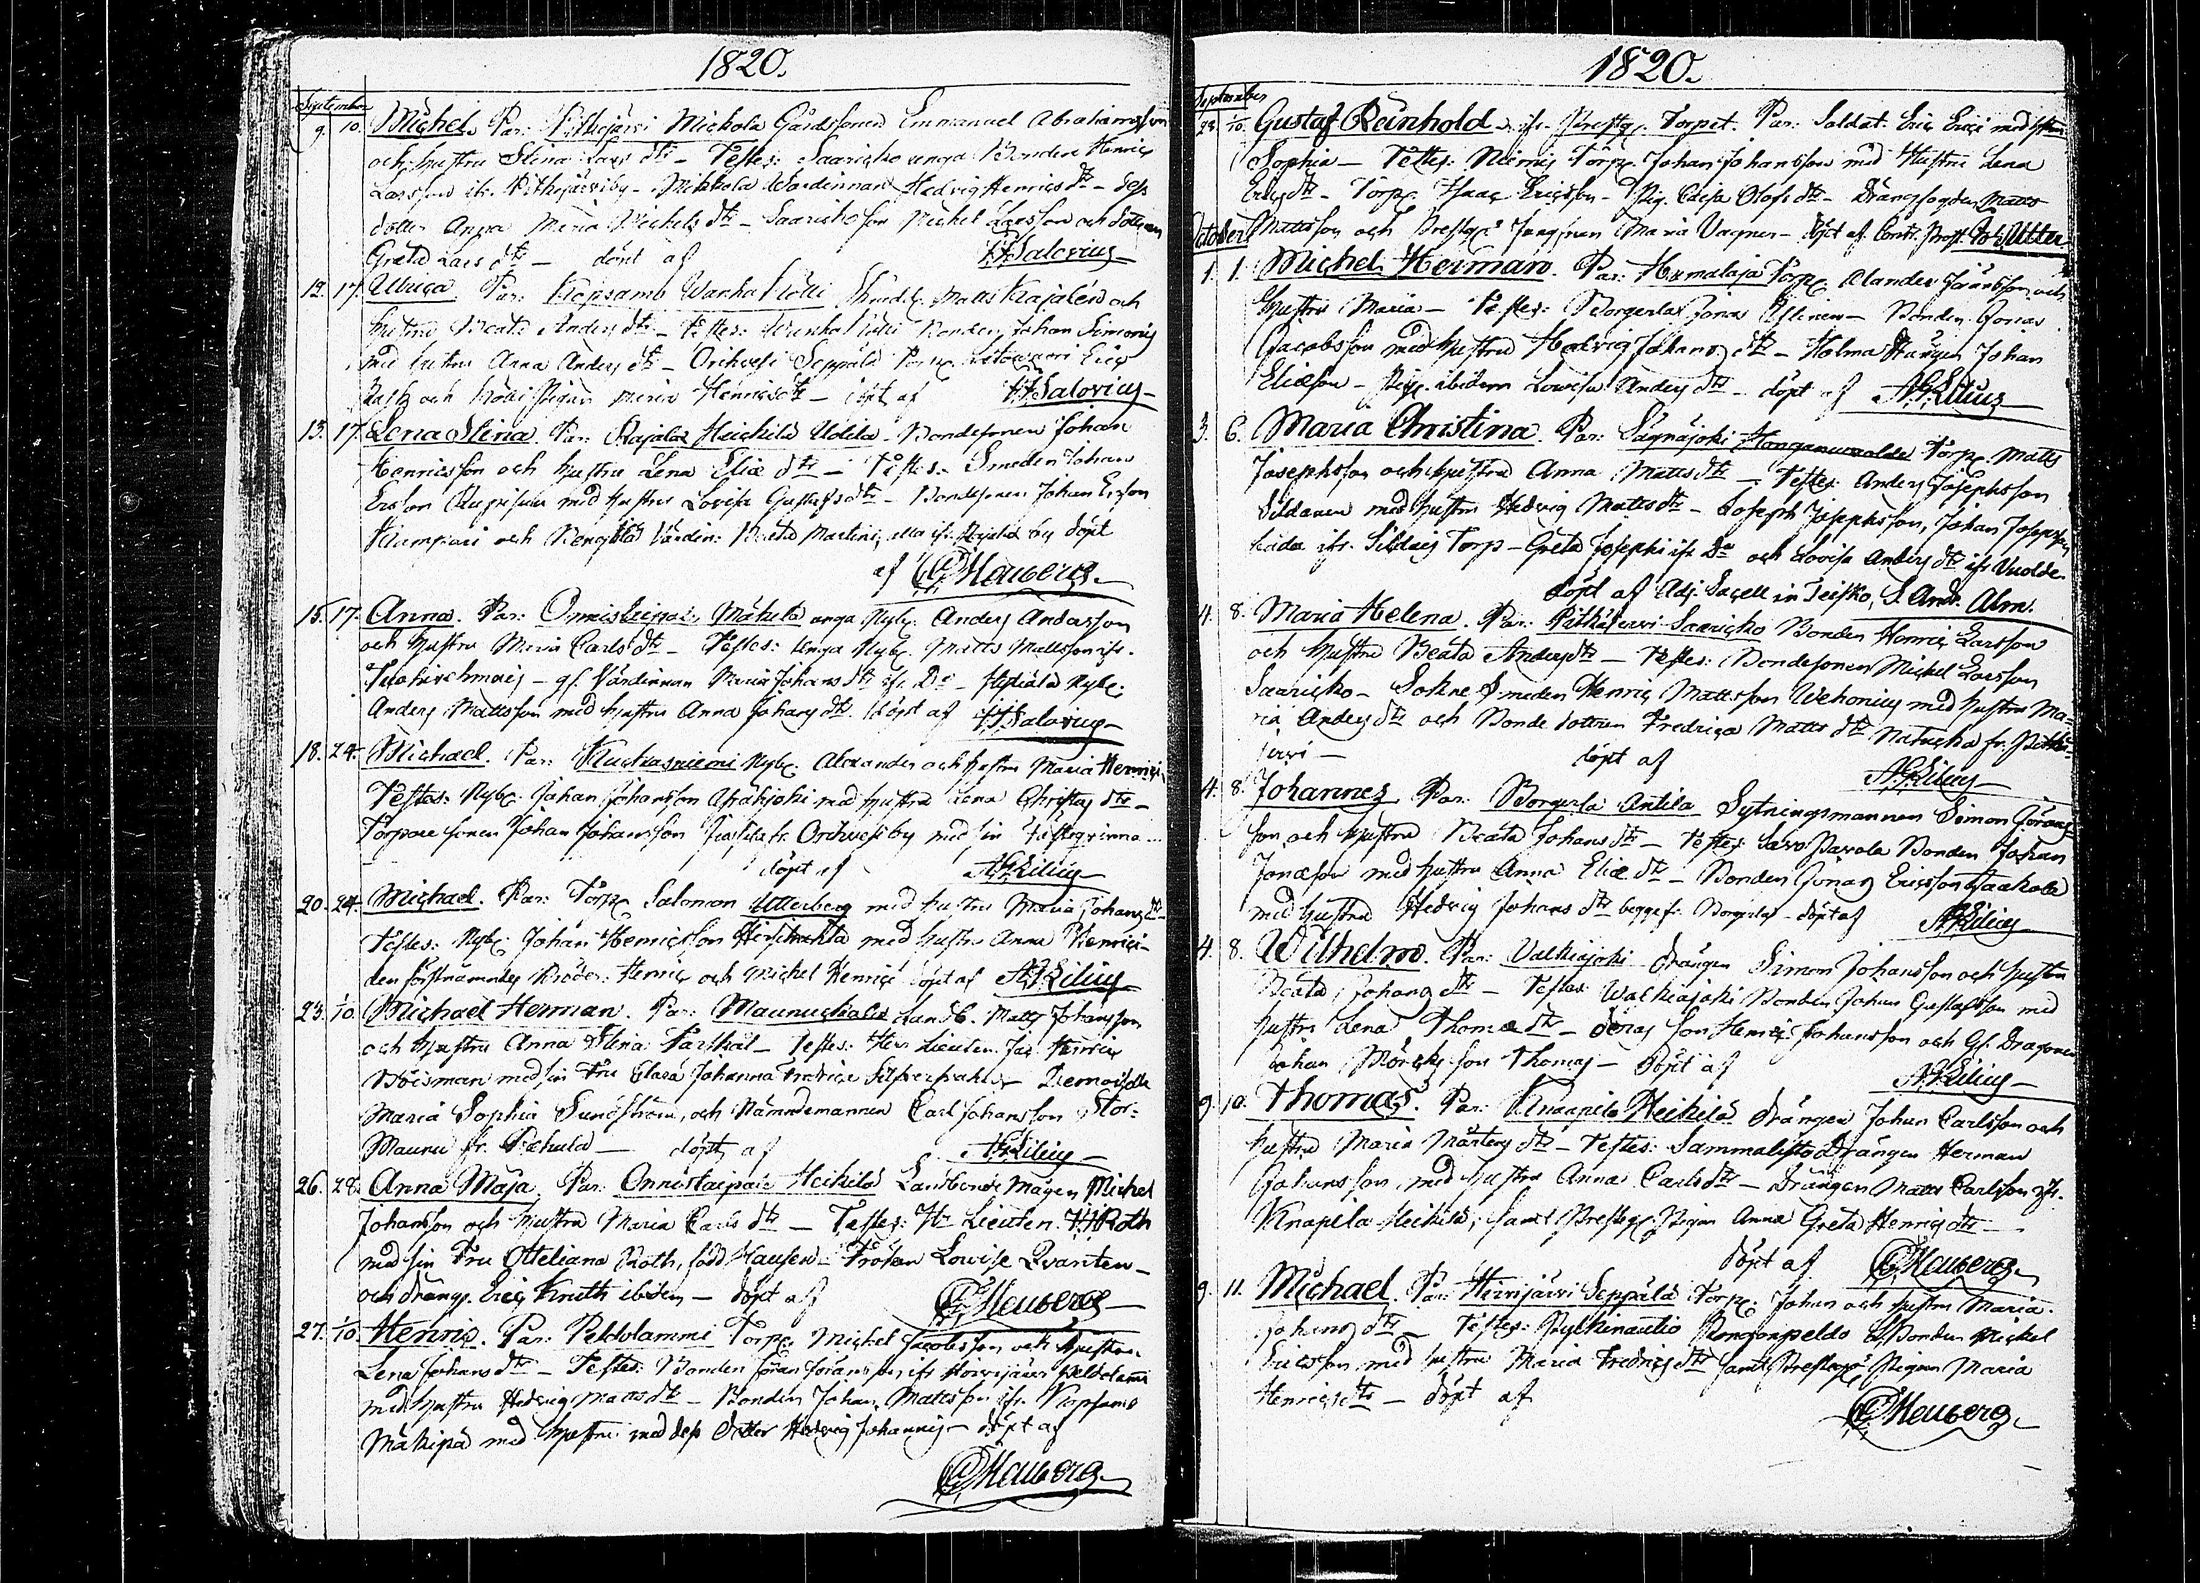 1820.
September
9. 10. Michel. Par: Pithejärvi Mickola Gårdssonen Emmanuel Abrahamsson
och hustru Stina Lars dtr – Testes: Saaricko unga Bonden Henric
Larsson ifr. Pithejärviby – Mikkola Wärdinnan Hedvig Henrics dtr – dess
dotter Anna Maria Michels dtr – Saaricko son Michel Larsson och dottren
Greta Lars dtr – döpt af HHSalovius
12. 17. Ulrica. Par: Kopsamo Wanha Kölli Matts Krajalén och
hustru Beata Anders dtr – Testes: Wanha Kölli Bonden Johan Simons
med hustru Anna Anders dtr – Orihvesi Seppälä Eric
Rask och Kölli Pigan Maria Henrics dtr – döpt af HHSalovius
13. 17. Lena Stina. Par: Rajalax Heickilä Udela Bondesonen Johan
Henricsson och hustru Lena Eliæ dtr – Testes: Smeden Johan
Ersson med hustru Lovisa Gustafs dtr – Bondesonen Johan Ersson
och Värdin: Beata Martini, alla ifr. by döpt
af CGHeuberg
15. 17. Anna. Par: Onnistaipal Mäkelä unga Nyby: Anders Andersson
och hustru Maria Carls dtr – Testes: unga Nyb. Matts Mattsson ifr.
– gl. Värdinnan Maria Johans dtr ifr. Do – Nyby:
Anders Mattsson med hustru Anna Johans dtr. döpt af HHSalovius
18. 24. Michael. Par: Kuckasniemi Nyb. Alexander och hustru Maria Henrics
Testes: Nyb. Johan Johansson med hustru Lena Christers dtr –
Torpare sonen Johan Johansson fr. Orihvesi by med sin Fästeqvinna ...
döpt af AGLilius
20. 24. Michael. Par: Torp. Salomon Utterberg med hustru Maria Johans dtr
Testes: Nyb. Johan Henricsson med hustru Anna Henrici –
den förstnämndes Bröder: Henric och Michel Henrici döpt af AGLilius
23. 1/10. Michael Herman. Par: Maunuckala Landb. Matts Johansson
och hustru Anna Stina – Testes: Herr Lieuten. Henric
Böisman med sin Fru Clara Johanna Fredrica – Demoiselle
Maria Sophia Sundström, och Nämndemannen Carl Johansson Stor-
Maunu fr. Pohula – döpt af AGLilius
26. 28. Anna Maja. Par: Onnistaipale Heickilä Landbonde Mågen Michel
Johansson och hustru Maria Carls dtr – Testes: Hr. Lieuten. HHRoth
med sin Fru Otteliana Roth, född Hausen – Fröken Lovise Qvanten –
och dräng. Eric Knuth ibidem – döpt af CGHeuberg
27. 1/10. Henric. Par: Peldolammi Torp. Michel Jacobsson och hustru
Lena Johans dtr – Testes: Bonden Jöran Jöransson ifr. Hirvijärvi Peldolammi
med hustru Hedvig Matts dtr – Bonden Johan Mattsson ifr. Kopsamo
Mäkipä med hustru med dess dotter Hedvig Johannis – döpt af
CGHeuberg
1820.
September
23. 1/10. Gustaf Reinhold – ifr. Prestg. Torpet. Par: Soldat. Eric Erici med hustru
Sophia – Testes: Niemis Torp. Johan Johansson med hustru Lena
Erics dtr – Torp. Isaac Ericsson – Pig. Cajsa Olofs dtr – Drängfogden Matts
October Mattsson och Prestg. Jungfrun Maria Vagner – döpt af Contr. Prost Joh. Utter
1. 1. Michel Herman. Par: Humalaja Torp. Alander Jöransson och
hustru Maria – Testes: Borgerlax Jonas – Bonden Jonas
Jacobsson med hustru Hedvig Johans dtr – Holma drängen Johan
Eliæson – Pig. ibidem Lowisa Anders dtr – döpt af AGLilius
3. 6. Maria Christina. Par: Sägnäjoki Torp. Matts
Josephsson och hustru Anna Matts dtr – Testes: Anders Josephsson
Sildanen med hustru Hedvig Matts dtr – Joseph Josephsson, Johan Josephson
båda ifr. Torp – Greta Josephi ifr. Do och Lovisa Anders dtr ifr.
döpt af Adj. Sacell. in Teisko, S. And. Alm.
4. 8. Maria Helena. Par: Pithejervi Saaricko Bonden Henric Larsson
och hustru Beata Anders dtr – Testes: Bondesonen Michel Larsson
Saaricko – Sokne Smeden Henric Mattsson Wehonius med hustru Ma-
ria Anders dtr och Bonde dottren Fredrica Matts dtr fr. Pithe-
jerwi – döpt af AGLilius
4. 8. Johannes. Par: Borgerla Antila Sytningsmannen Simon Jörans
son och hustru Beata Johans dtr – Testes: Savo Pavola Bonden Johan
Jonæson med hustru Anna Eliæ dtr – Bonden Jonas Ericsson Jaakola
med hustru Hedvig Johans dtr begge fr. Borgerla – döpt af AGLilius
4. 8. Wilhelm. Par: Valkiajoki drängen Simon Johansson och hustru
Beata Johans dtr – Testes: Walkiajoki Bonden Johan Gustafsson med
hustru Lena Thomæ dtr – deras son Henric Johansson och Gl. Dragonen
Johan Mörcks son Thomas – döpt af AGLilius
9. 10. Thomas. Par: Knaapila Heikilä drängen Johan Carlsson och
hustru Maria Mårtens dtr – Testes: Sammalisto Drängen Herman
Johansson med hustru Anna Carls dtr – Drängen Matts Carlsson ifr.
Knapila Heikilä, samt Prestg. Pigan Anna Greta Henrics dtr –
döpt af CGHeuberg
9. 11. Michael. Par: Hirvijärvi Seppälä Torp. Johan och hustru Maria
Johans dtr – Testes: Pylkinautio Bonden Michel
Ericsson med hustru Maria Fredrics dtr samt Prestg. Pigan Maria
Henrics dtr – döpt af
CGHeuberg